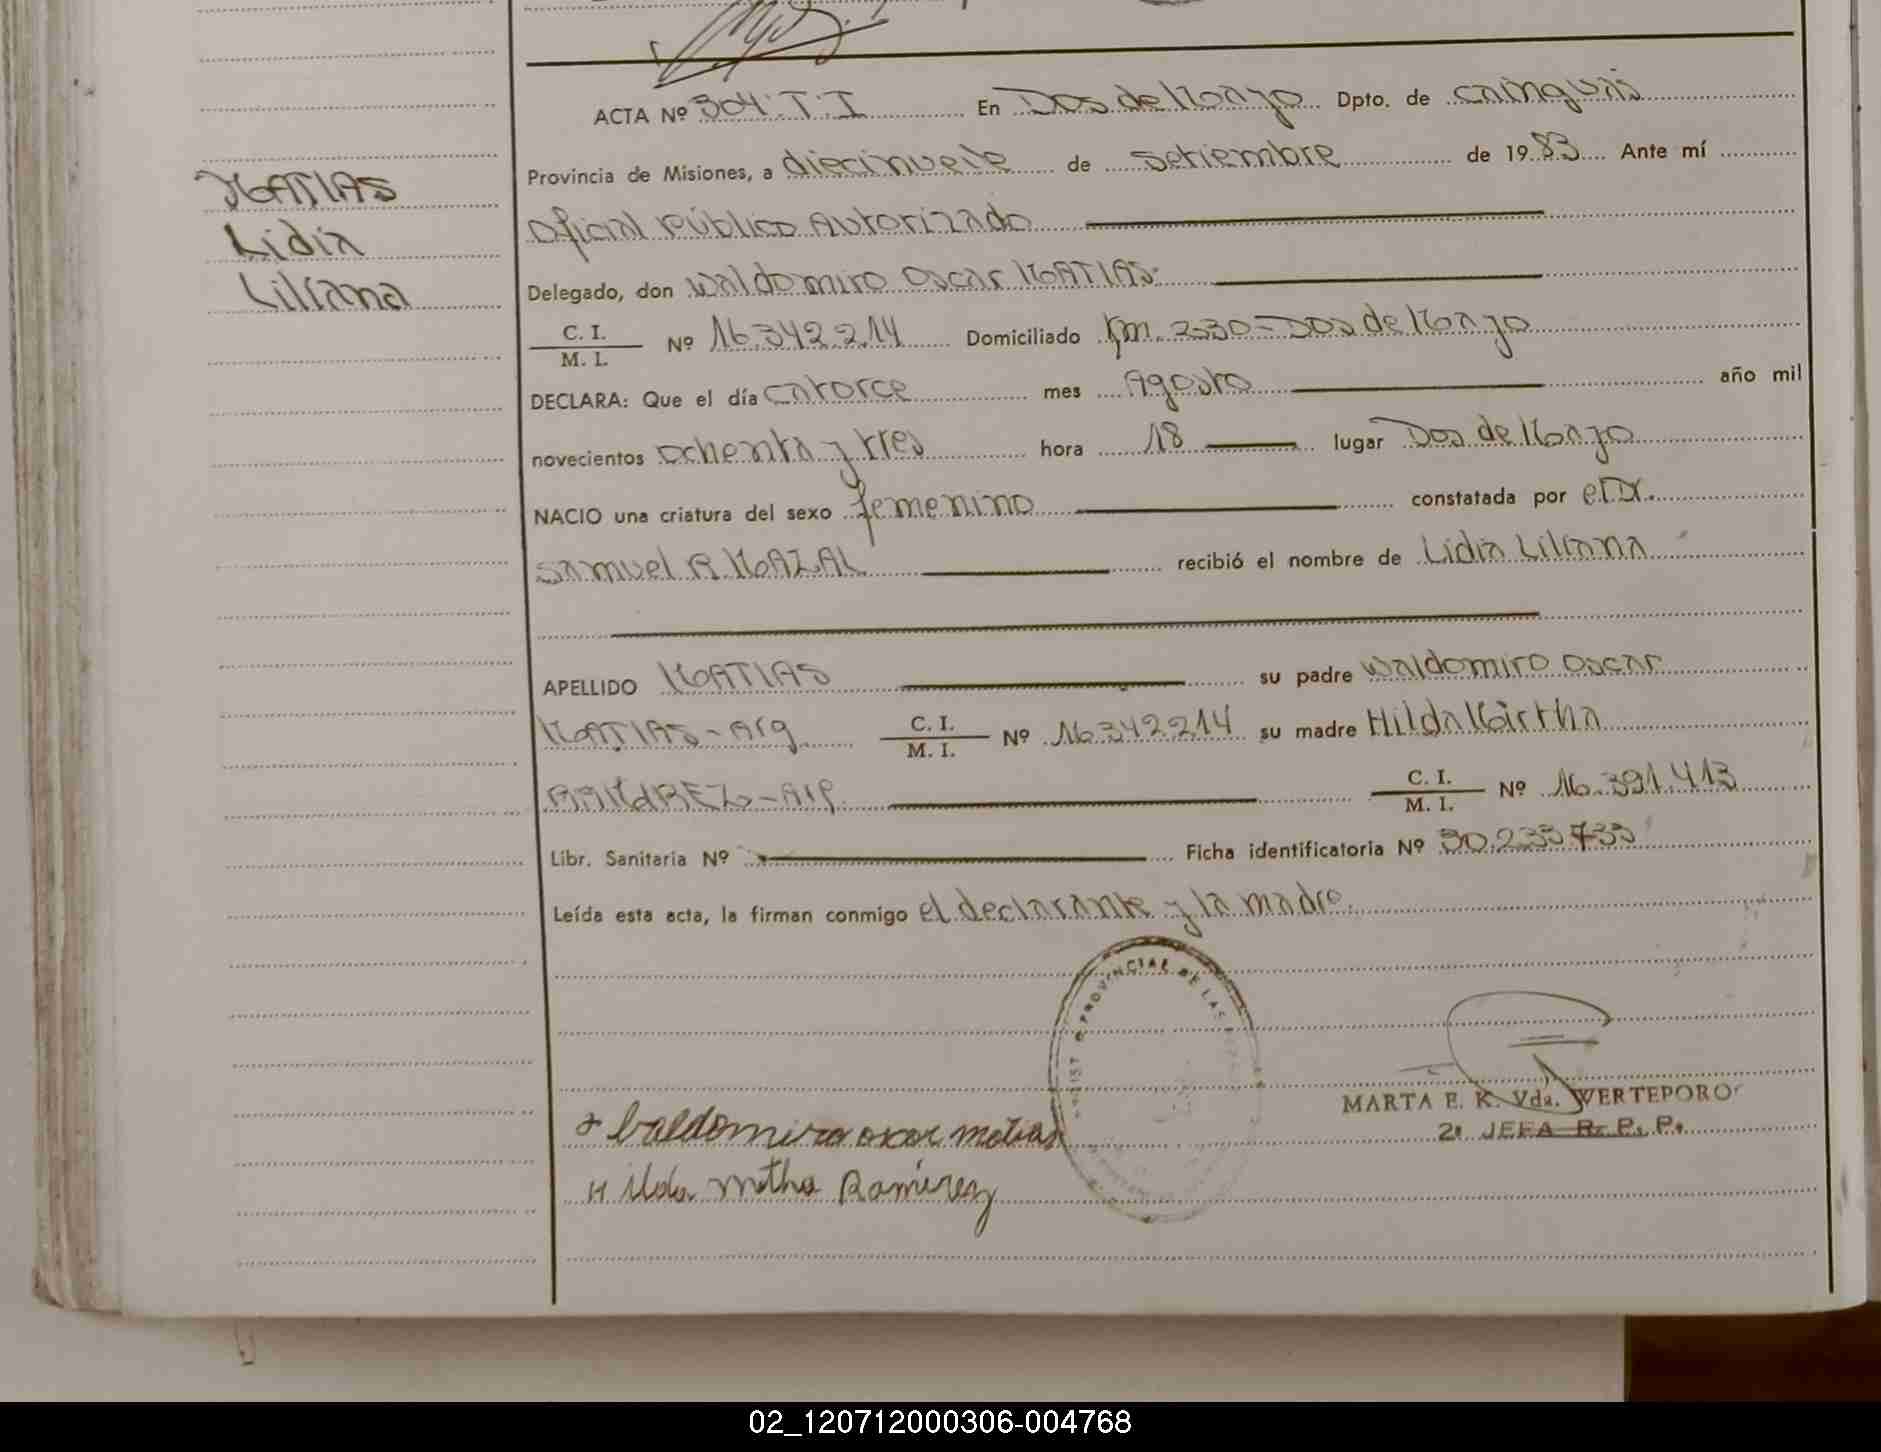 ACTA Nº 304. T. I En Dos de Mayo Dpto. de Cainguás
Provincia de Misiones, a diecinueve de Setiembre de 1983 Ante mí
MATIAS
Oficial Público Autorizado
Lidia
Delegado, don Waldomiro Oscar MATIAS
Liliana
C. I.
M. I. Nº 16.342.214 Domiciliado Km. 230 - Dos de Mayo
DECLARA: Que el día catorce mes Agosto año mil
novecientos ochenta y tres hora 18 lugar Dos de Mayo
NACIO una criatura del sexo femenino constatada por el Dr.
Samuel A. MAZAL recibió el nombre de Lidia Liliana
APELLIDO MATIAS su padre Waldomiro Oscar
MATIAS - Arg C. I.
M. I. Nº 16.342.214 su madre Hilda Mirtha
RAMIREZ - Arg. C. I.
M. I. Nº 16.391.413
Libr. Sanitaria Nº Ficha identificatoria Nº 30.233.733
Leída esta acta, la firman conmigo el declarante y la madre.
PROVINCIAL DE LAS
MARTA E. K. Vda. WERTEPORO
2ª JEFA R. P. P.
baldomiro oscar matias
Hilda mitha Ramirez
02_120712000306-004768